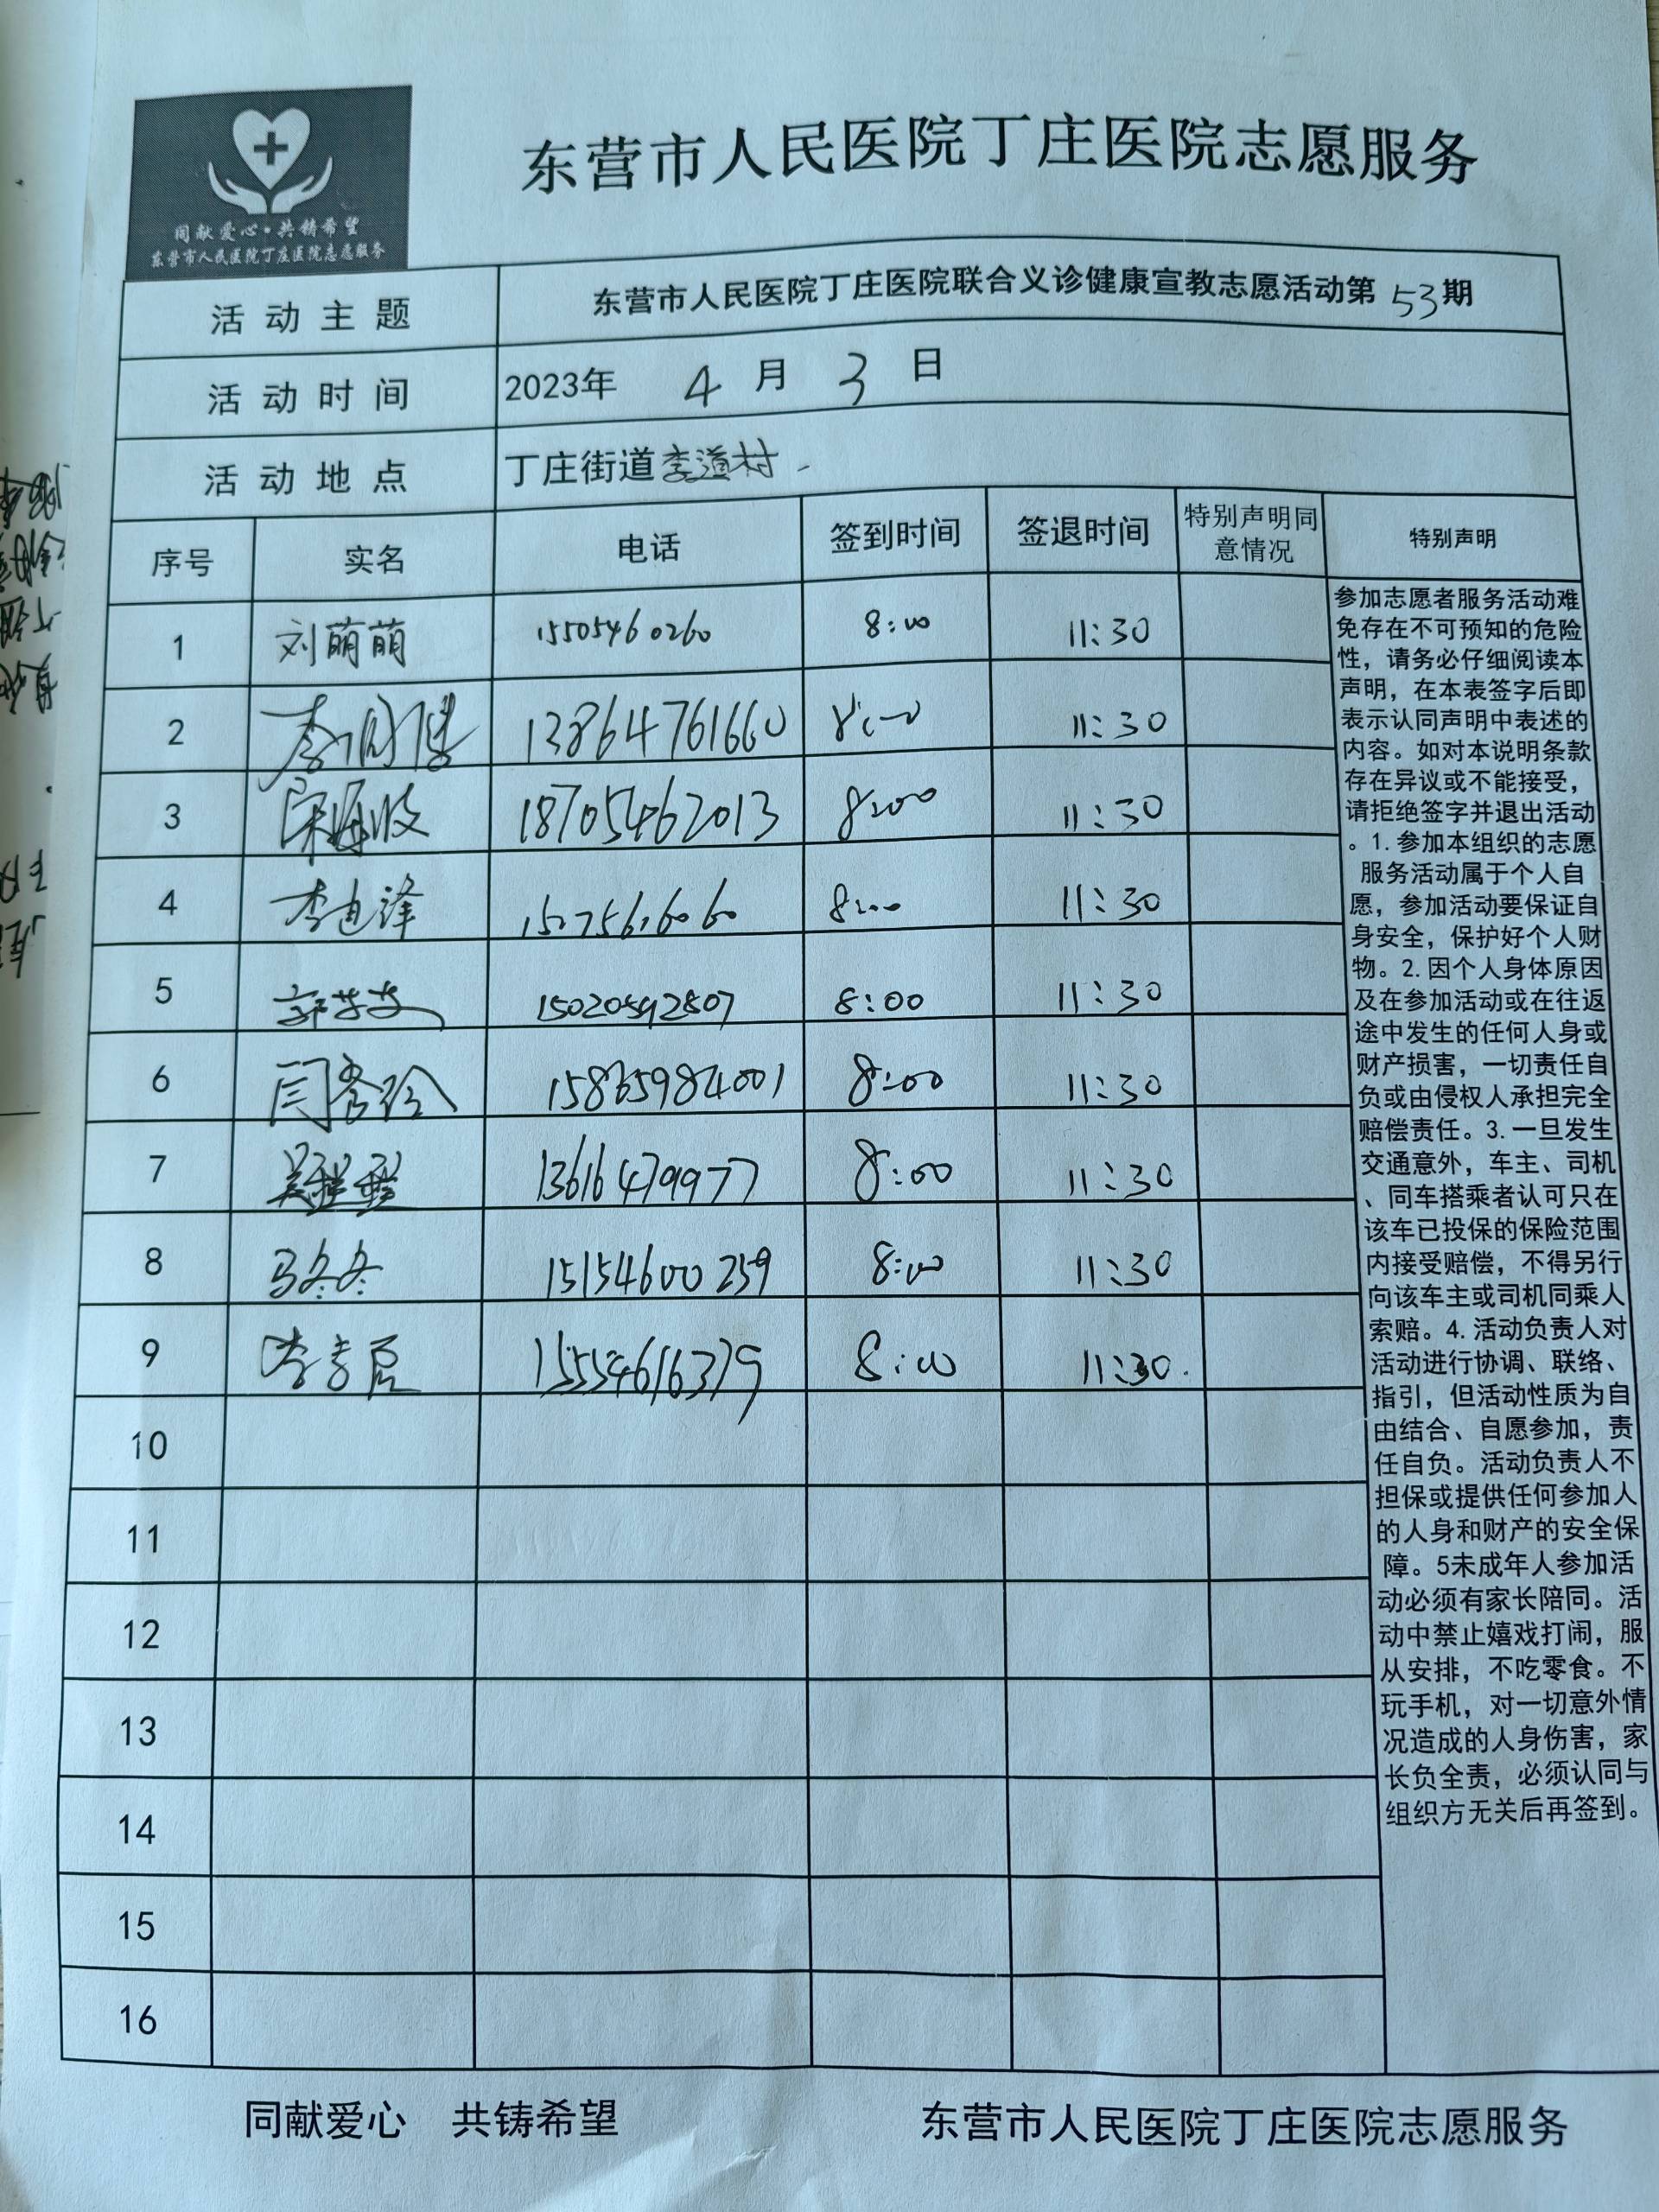 同献爱心·共铸希望
东营市人民医院丁庄医院志愿服务
东营市人民医院丁庄医院志愿服务
活动主题 东营市人民医院丁庄医院联合义诊健康宣教志愿活动第53期
活动时间 2023年 4 月 3 日
活动地点 丁庄街道李道村
序号 实名 电话 签到时间 签退时间 特别声明同意情况 特别声明
1 刘萌萌 15505460260 8:00 11:30
2 13864761660 8:00 11:30
3 18705462013 8:00 11:30
4 8:00 11:30
5 8:00 11:30
6 闫秀玲 8:00 11:30
7 13616479977 8:00 11:30
8 马冬冬 15154600259 8:00 11:30
9 15554616379 8:00 11:30
10
11
12
13
14
15
16
参加志愿者服务活动难
免存在不可预知的危险
性，请务必仔细阅读本
声明，在本表签字后即
表示认同声明中表述的
内容。如对本说明条款
存在异议或不能接受，
请拒绝签字并退出活动
。1.参加本组织的志愿
服务活动属于个人自
愿，参加活动要保证自
身安全，保护好个人财
物。2.因个人身体原因
及在参加活动或在往返
途中发生的任何人身或
财产损害，一切责任自
负或由侵权人承担完全
赔偿责任。3.一旦发生
交通意外，车主、司机
、同车搭乘者认可只在
该车已投保的保险范围
内接受赔偿，不得另行
向该车主或司机同乘人
索赔。4.活动负责人对
活动进行协调、联络、
指引，但活动性质为自
由结合、自愿参加，责
任自负。活动负责人不
担保或提供任何参加人
的人身和财产的安全保
障。5未成年人参加活
动必须有家长陪同。活
动中禁止嬉戏打闹，服
从安排，不吃零食。不
玩手机，对一切意外情
况造成的人身伤害，家
长负全责，必须认同与
组织方无关后再签到。
同献爱心 共铸希望 东营市人民医院丁庄医院志愿服务